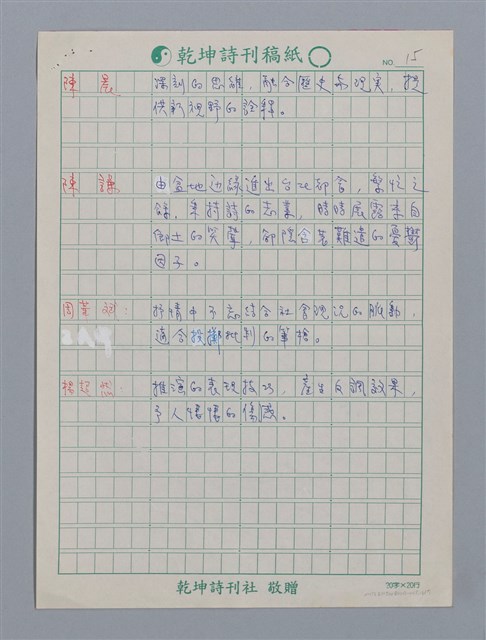 乾坤詩刊稿紙
NO. 15
陳晨 深刻的思維，融合歷史與現実，提
供新視野的詮釋。
陳謙 由盆地边緣進出台北都會，繁忙之
餘，秉持詩的志業，時時展露來自
鄉土的笑聲，卻隱含著難遣的憂鬱
因子。
抒情中不忘結合社會現況的脈動，
適合投擲批判的筆槍。
楊超然： 推演的表現技巧，產生反諷效果，
予人悽悽的傷感。
乾坤詩刊社 敬贈
20字×20行